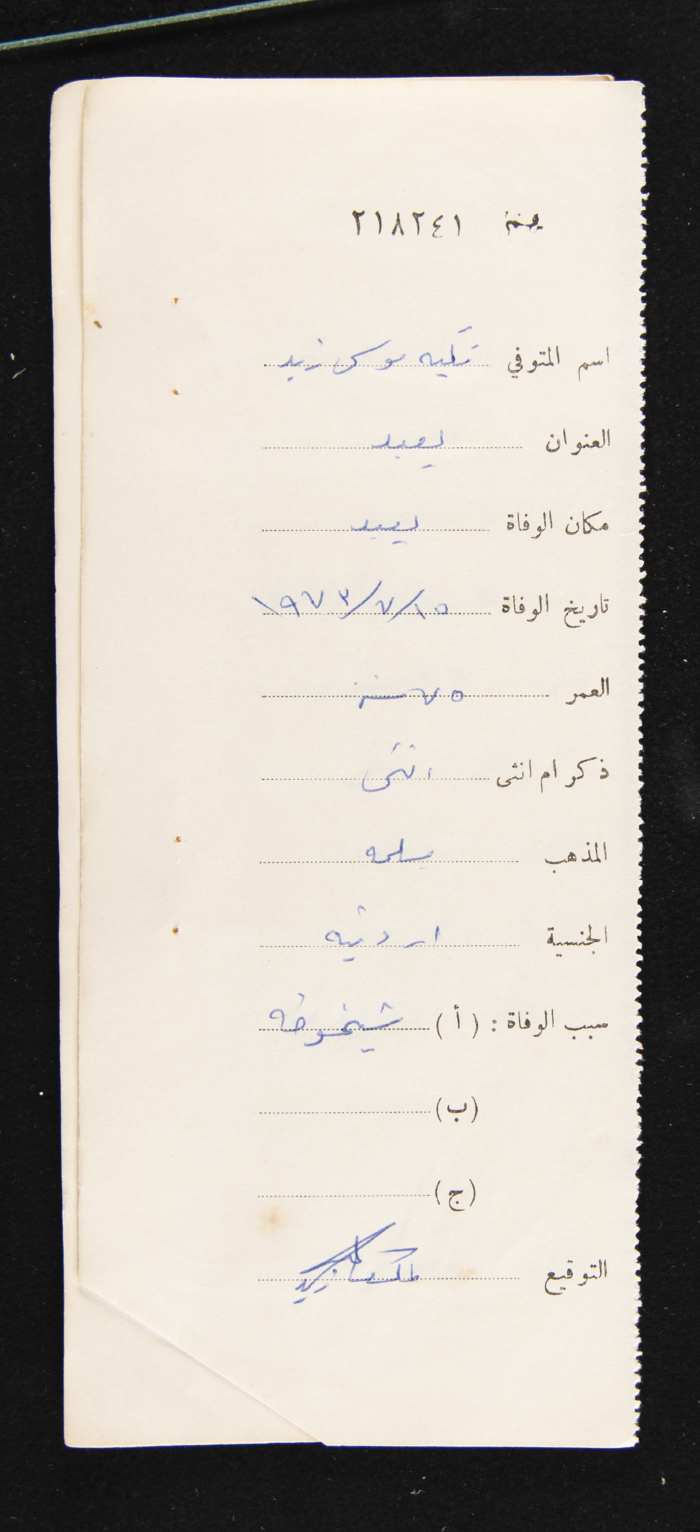 نمرة ٢١٨٢٤١
اسم المتوفي تكليه موسى زيد
العنوان يعبد
مكان الوفاة يعبد
تاريخ الوفاة ١٥/٧/١٩٧٣
العمر ٧٥ سنه
ذكر ام انثى انثى
المذهب مسلمه
الجنسية اردنيه
سبب الوفاة : ( أ ) شيخوخه
(ب)
(ج)
التوقيع